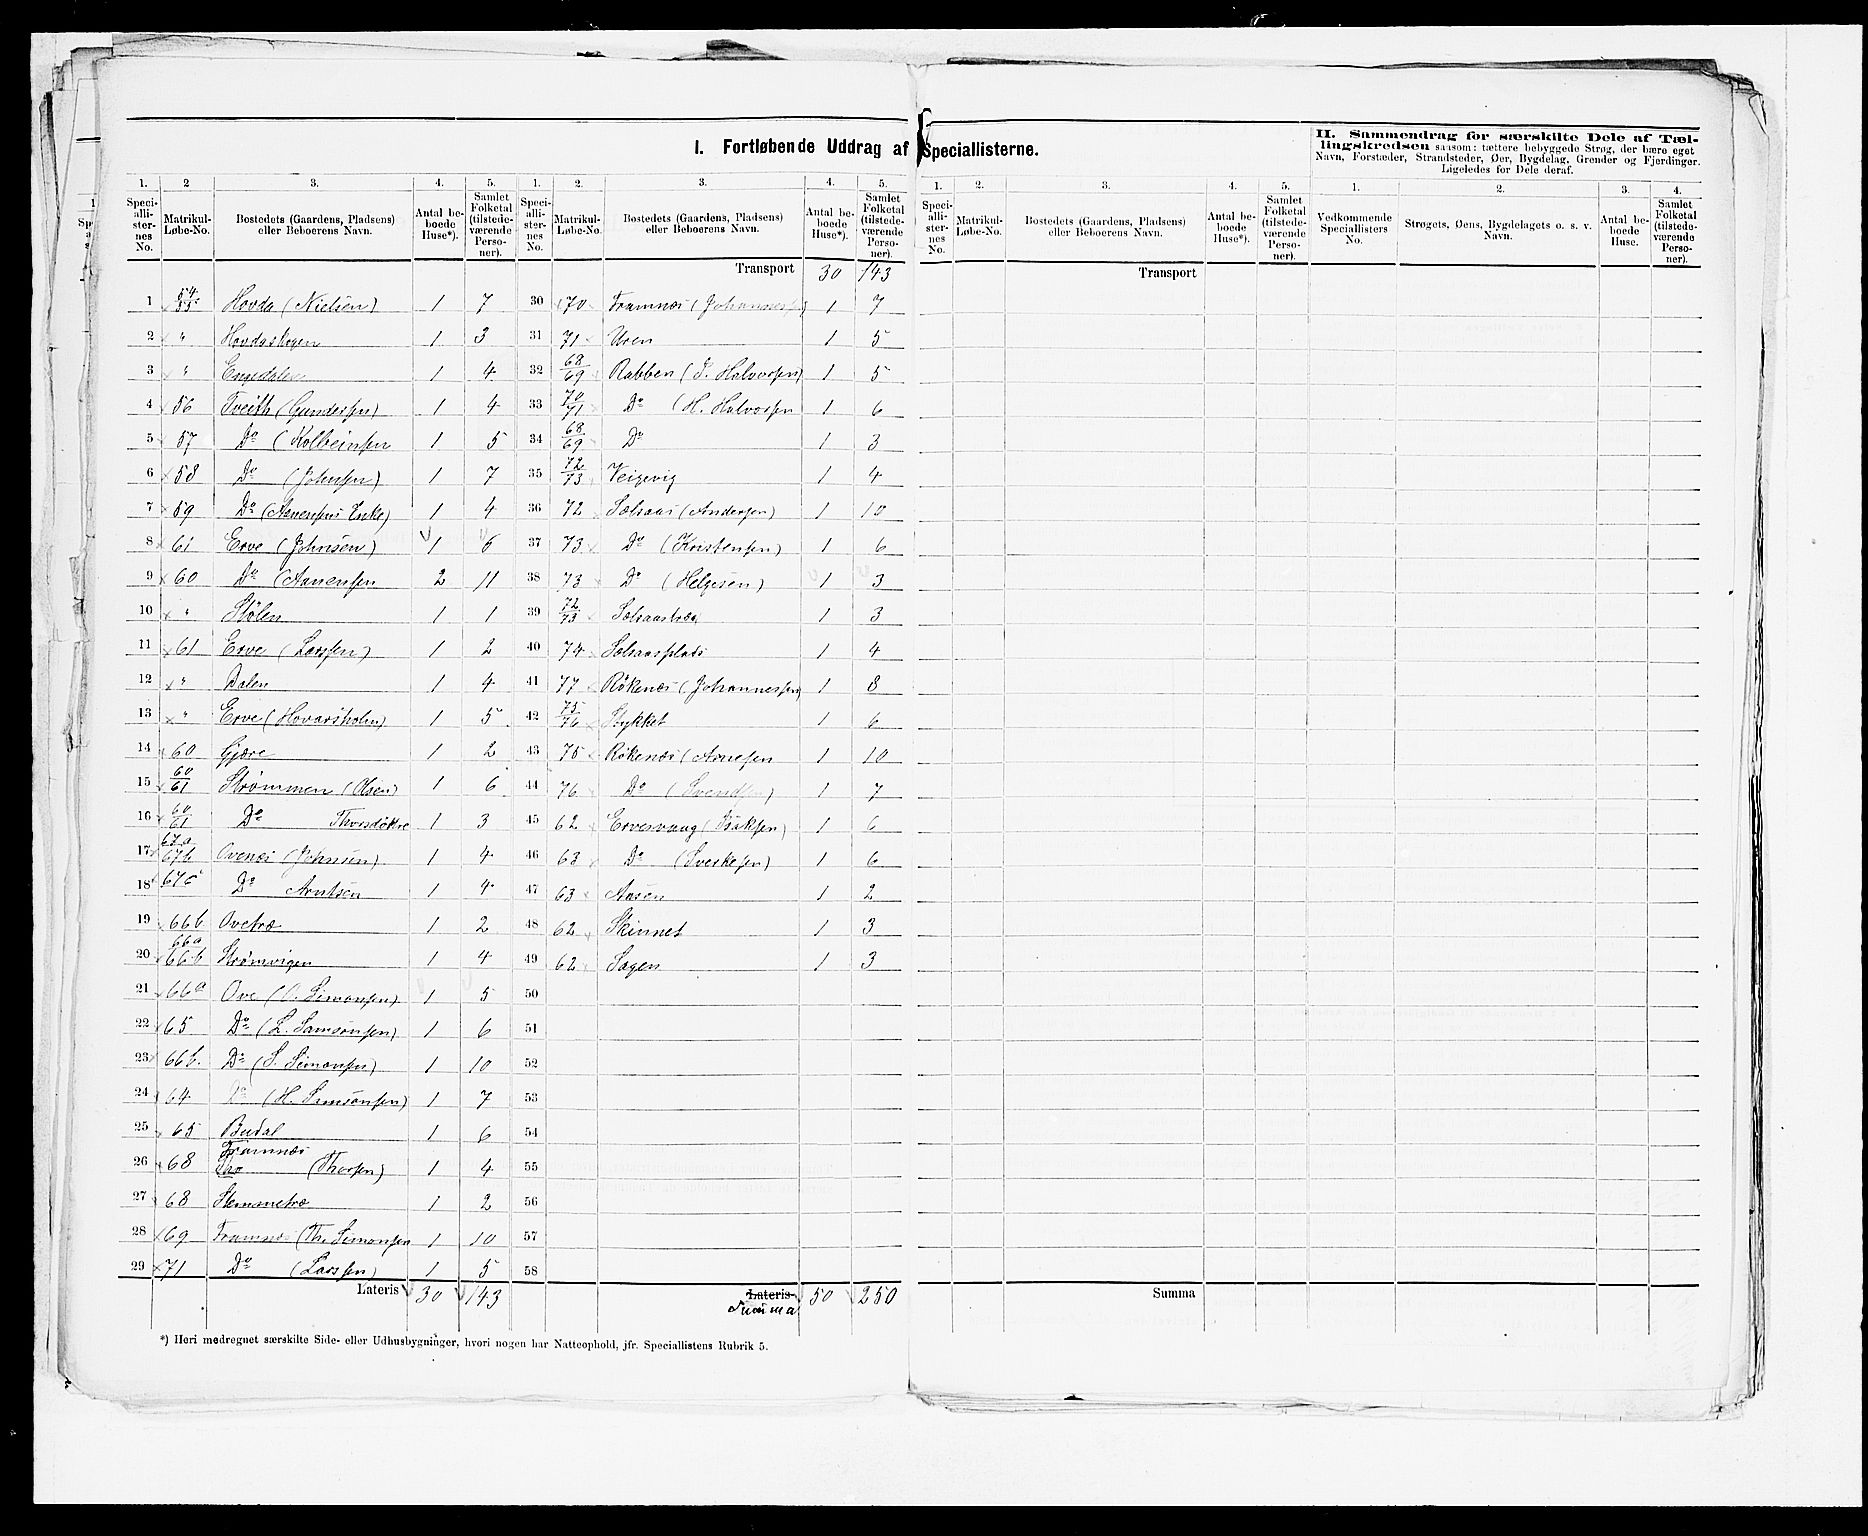 I. Fortløbende Uddrag af Speciallisterne.
II. Sammendrag for særskilte Dele af Tæl-
lingskredsen saasom: tættere bebyggede Strøg, der bære eget
Navn, Forstæder, Strandsteder, Øer, Bygdelag, Grender og Fjerdinger.
Ligeledes for Dele deraf.
1. 2 3. 4. 5. 1. 2. 3. 4. 5. 1. 2. 3. 4. 5. 1. 2. 3. 4.
Speciallisternes No. Matrikul-Løbe-No. Bostedets (Gaardens, Pladsens) eller Beboerens Navn. Antal beboede Huse*). Samlet Folketal (tilstedeværende Personer).
Speciallisternes No. Matrikul-Løbe-No. Bostedets (Gaardens, Pladsens) eller Beboerens Navn. Antal beboede Huse*). Samlet Folketal (tilstedeværende Personer).
Speciallisternes No. Matrikul-Løbe-No. Bostedets (Gaardens, Pladsens) eller Beboerens Navn. Antal beboede Huse*). Samlet Folketal (tilstedeværende Personer).
Vedkommende Speciallisters No. Strøgets, Øens, Bygdelagets o. s. v. Navn. Antal beboede Huse. Samlet Folketal (tilstedeværende Personer).
1 54/55 Hovda (Nielsen) 1 7
2 " Hovdaskogen 1 3
3 " Engedalen 1 4
4 56 Tveith (Gundersen) 1 4
5 57 Do (Kolbeinsen 1 5
6 58 Do (Johnsen) 1 7
7 59 Do (Aanensens Enke) 1 4
8 61 Erve (Johnsen) 1 5
9 60 Do (Aanensen 2 11
10 " Stølen 1 1
11 61 Erve (Larssen) 1 2
12 " Dalen 1 4
13 " Erve (Hovarsholm) 1 5
14 60 Gjære 1 2
15 60/61 Strømmen (Olsen) 1 6
16 60/61 Do 1 3
17 67a 67b Ovenæs (Johnsen) 1 4
18 67c Do Arntsen 1 4
19 66b Ovetræ 1 2
20 66a 66b Strømvigen 1 4
21 66a Ove (O. Simonsen) 1 5
22 65 Do (L. Samsonsen) 1 6
23 66b. Do (S. Simonsen) 1 10
24 64 Do (H. Samsonsen) 1 7
25 65 Budal 1 6
26 68 Framnæs (Thorsen) 1 4
27 68 Stemmetræ 1 2
28 69 Framnæs (Th. Simonsen 1 10
29 71 Do (Larssen) 1 5
Lateris 30 143
Transport 30 143
30 70 Framnæs (Johannessen) 1 7
31 71 Uren 1 5
32 68/69 Rabben (J. Halvorsen) 1 5
33 70/71 Do (H. Halvorsen 1 6
34 68/69 Do 1 3
35 72/73 Veigevig 1 4
36 72 Selaas (Andersen) 1 10
37 73 Do (Kristensen) 1 6
38 73 Do (Helgesen) 1 3
39 72/73 Selaastræ 1 3
40 74 Selaasplads 1 4
41 77 Røkenæs (Johannessen) 1 8
42 75/76 Stykket 1 6
43 75 Røkenæs (Arnesen 1 10
44 76 Do (Svendsen) 1 7
45 62 Ervesvaag (Isaksen) 1 6
46 63 Do (Sverkesen) 1 6
47 63 Aasen 1 2
48 62 Skinnet 1 3
49 62 Sagen 1 3
50
51
52
53
54
55
56
57
58
Lateris Summa 50 250
Transport
Summa
*) Heri medregnet særskilte Side- eller Udhusbygninger, hvori nogen har Natteophold, jfr. Speciallistens Rubrik 5.